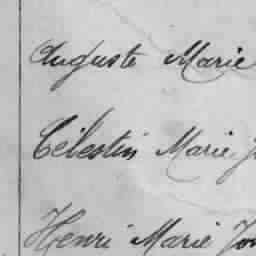 Auguste Marie
Célestin Marie
Henri Marie